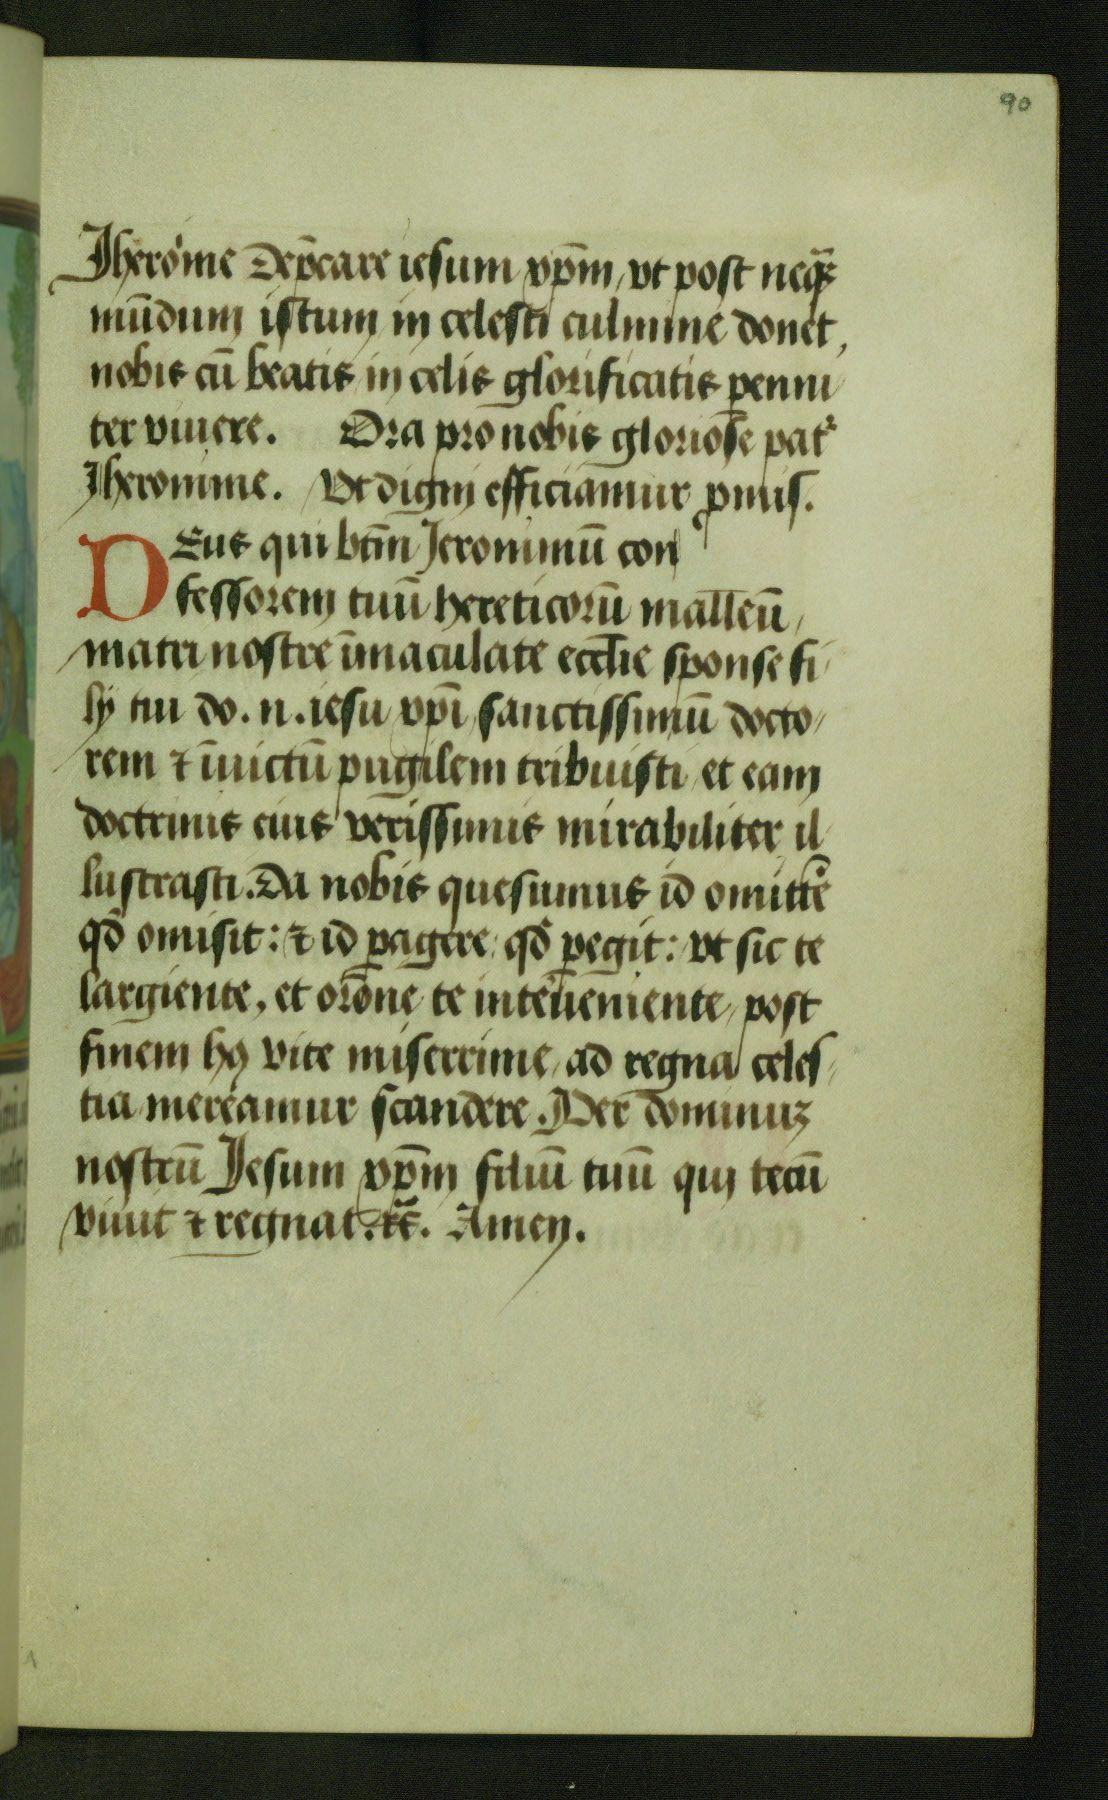 90
Jherōme dep̄care iesum xp̄m, vt post neq̄ꝫ
mūdum istum in celesti culmine donet,
nobis cū beatis in celis glorificatis ꝑenni
ter viuere. Ora pro nobis gloriose pat᷑
Jheronime. Vt digni efficiamur ꝓmis.
DEus qui btm̄ Jeronimū con
fessorem tuū hereticorū malleū,
matri nostre īmaculate ecclīe sponse fi
lij tui do. n. iesu xp̄i sanctissimū docto
rem ⁊ īuictū pugilem tribuisti et eam
doctrinis eius verissimis mirabiliter il
lustrasti. Da nobis quesumus id omittē
qd̄ omisit: ⁊ id ꝑagere qd̄ ꝑegit: vt sic te
largiente, et orōne te interueniente post
finem hꝰ vite miserrime ad regna celes
tia mereamur scandere. Per dominuꝫ
nostrū Jesum xp̄m filiū tuū qui tecū
viuit ⁊ regnat. ⁊c̄. Amen.